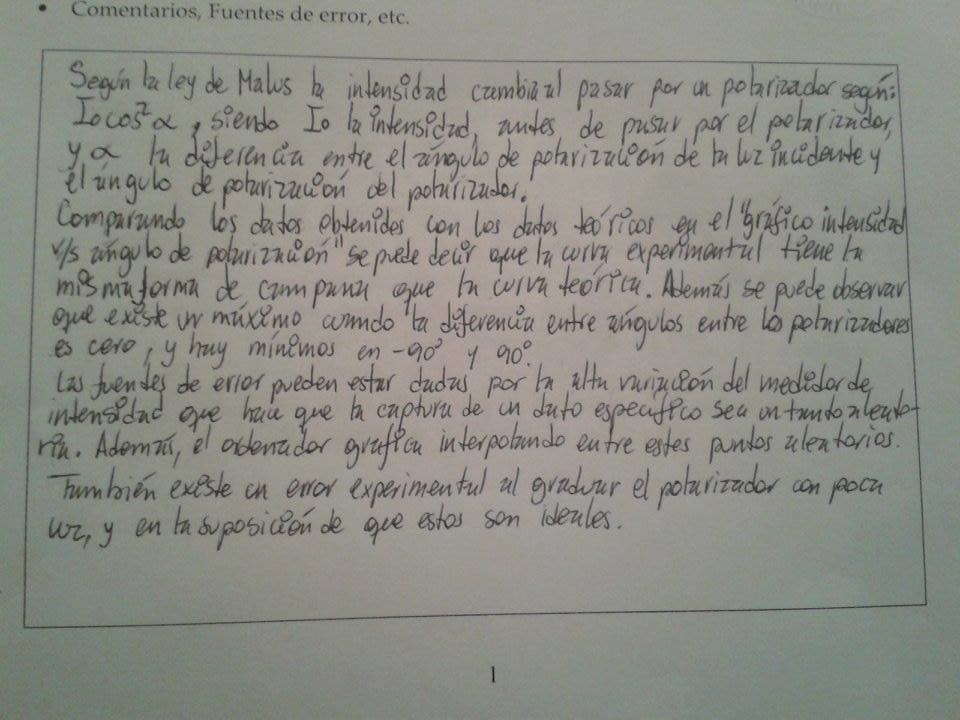 • Comentarios, Fuentes de error, etc.
Según la ley de Malus la intensidad cambia al pasar por un polarizador según:
I₀cos²α, siendo I₀ la intensidad, antes, de pasar por el polarizador,
y α la diferencia entre el ángulo de polarización de la luz incidente y
el ángulo de polarización del polarizador.
Comparando los datos obtenidos con los datos teóricos en el "gráfico intensidad
v/s ángulo de polarización" se puede decir que la curva experimental tiene la
misma forma de campana que la curva teórica. Además se puede observar
que existe un máximo cuando la diferencia entre ángulos entre los polarizadores
es cero, y hay mínimos en -90° y 90°.
Las fuentes de error pueden estar dadas por la alta variación del medidor de
intensidad que hace que la captura de un dato específico sea un tanto aleato-
ria. Además, el ordenador grafica interpolando entre estos puntos aleatorios.
También existe un error experimental al graduar el polarizador con poca
luz, y en la suposición de que estos son ideales.
1